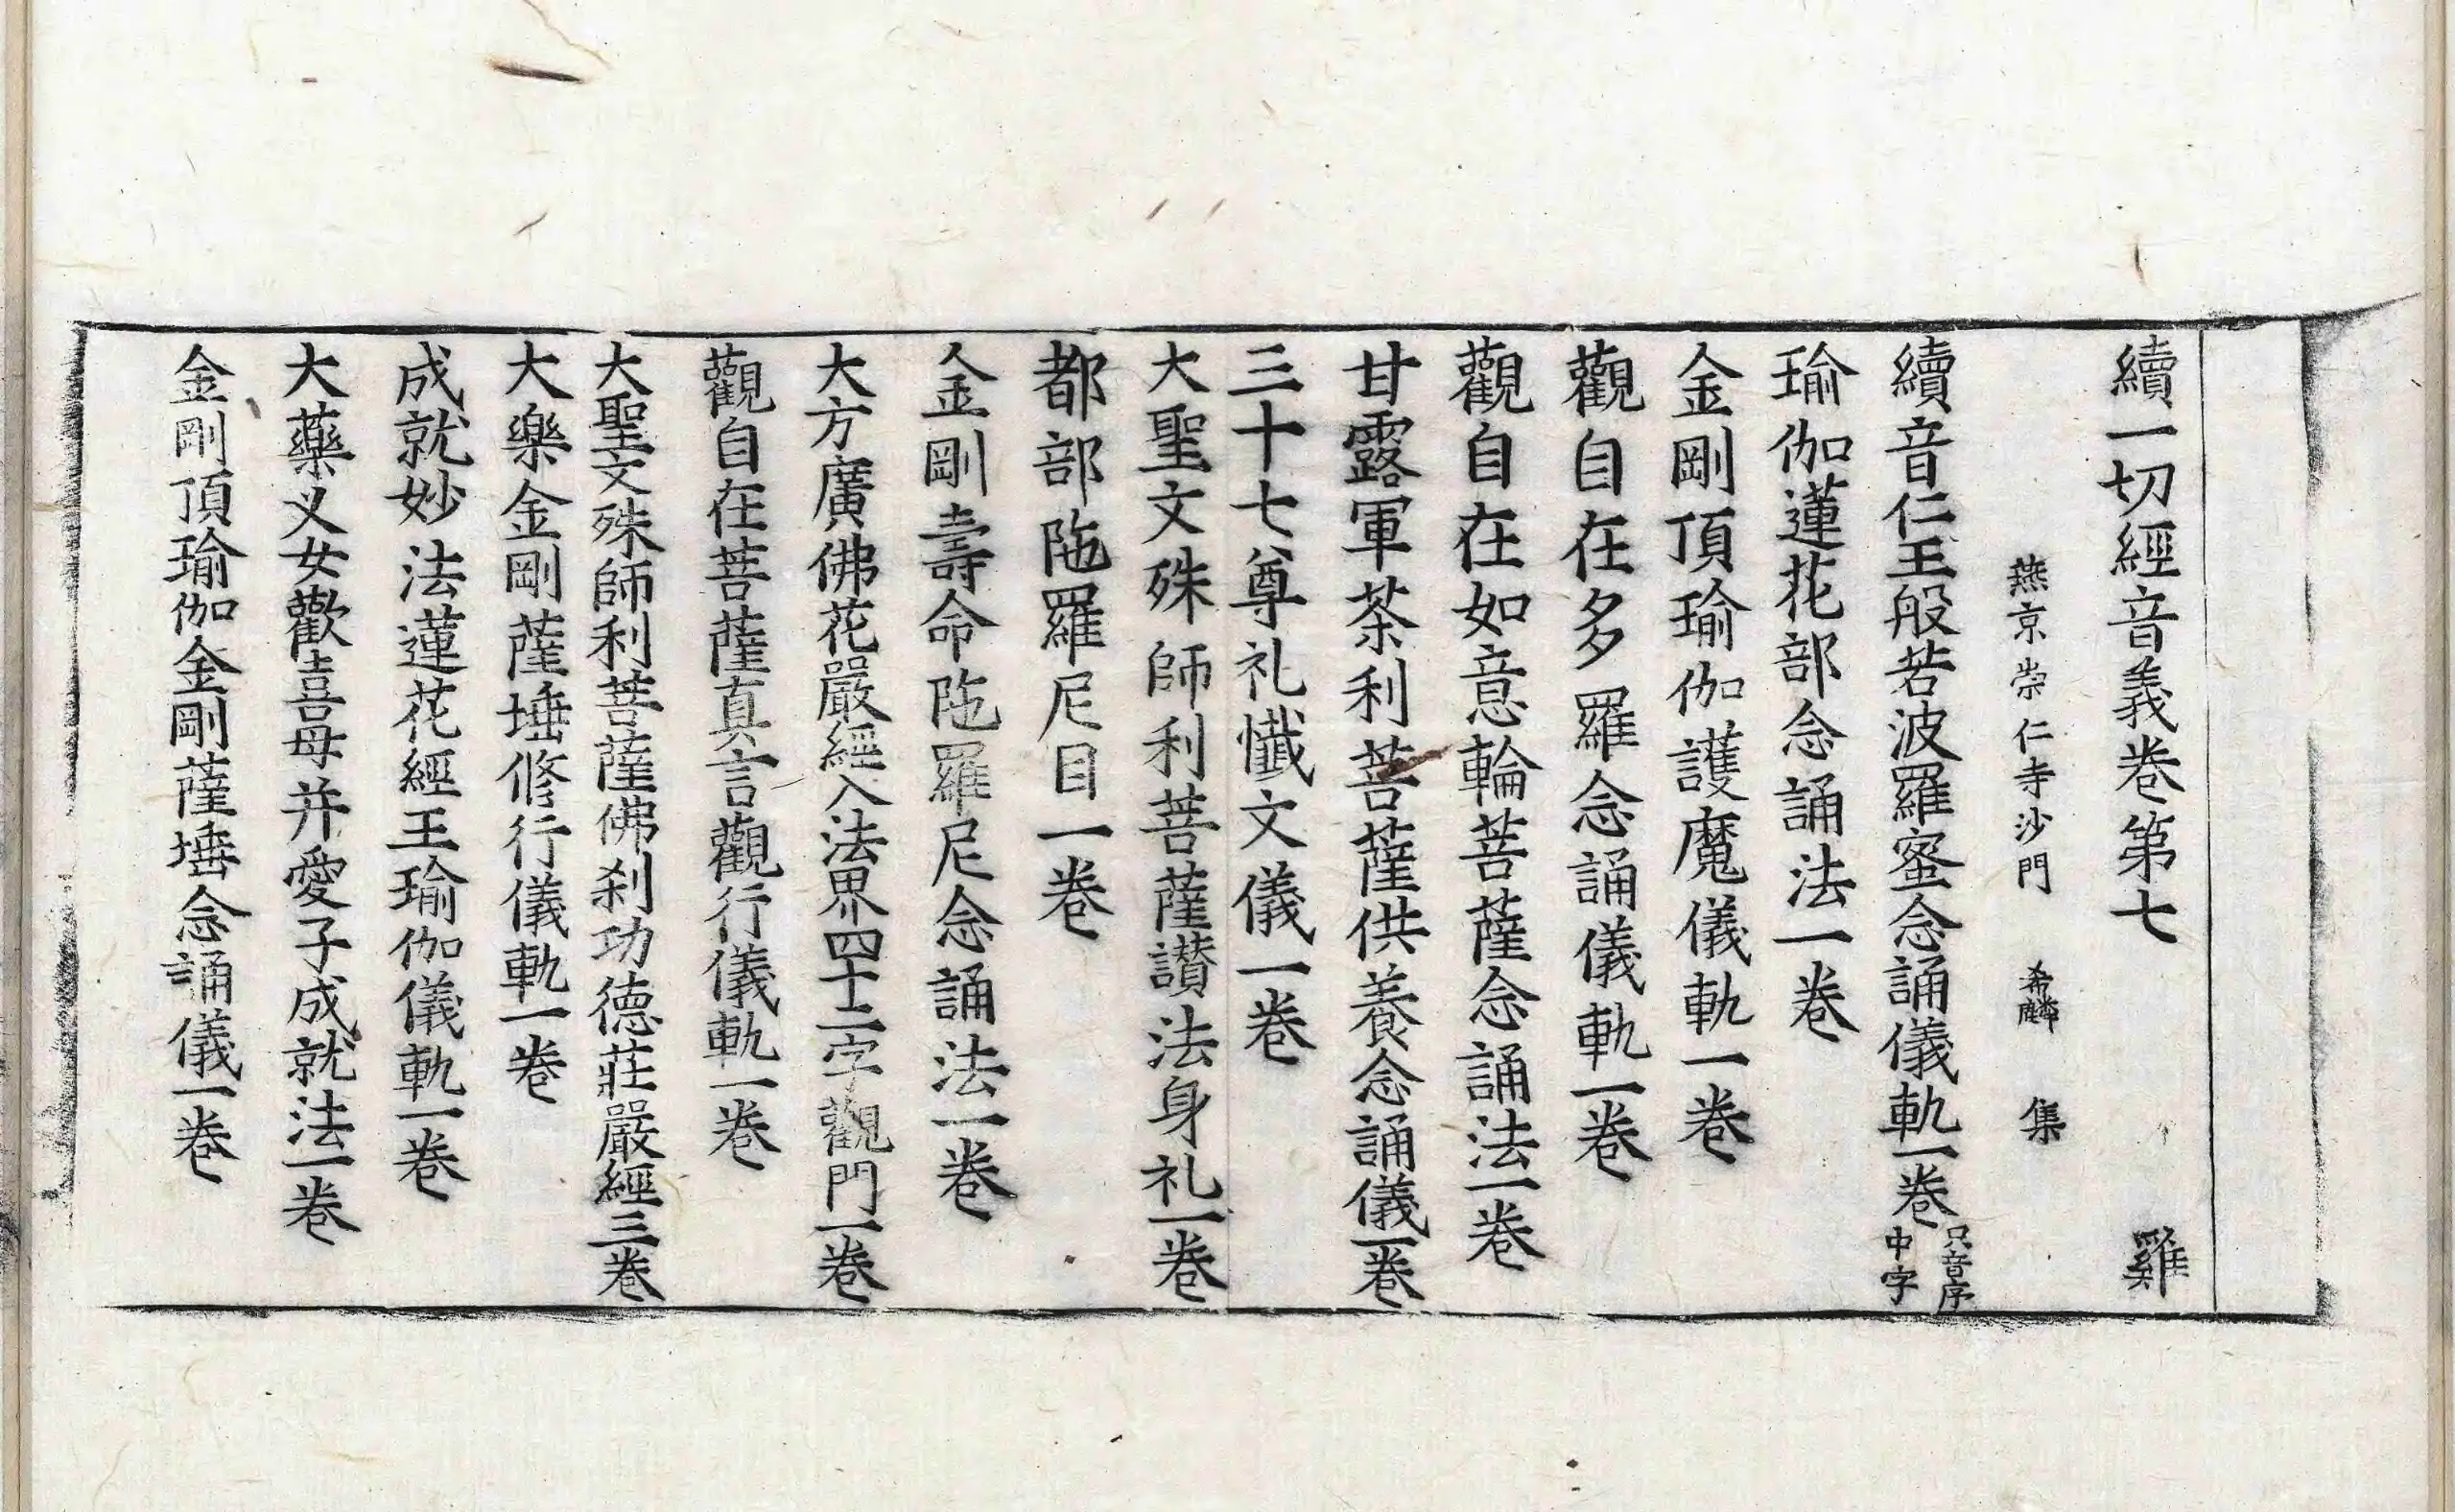 續一切經音義卷第七　雞
燕京崇仁寺沙門　希麟　集
續音仁王般若波羅蜜念誦儀軌一卷只音序中字
瑜伽蓮花部念誦法一卷
金剛頂瑜伽護魔儀軌一卷
觀自在多羅念誦儀軌一卷
觀自在如意輪菩薩念誦法一卷
甘露軍茶利菩薩供養念誦儀一卷
三十七尊礼懺文儀一卷
大聖文殊師利菩薩讃法身礼一卷
都部陁羅尼目一卷
金剛壽命陁羅尼念誦法一卷
大方廣佛花嚴經入法界四十二字觀門一卷
觀自在菩薩真言觀行儀軌一卷
大聖文殊師利菩薩佛刹功德莊嚴經三卷
大樂金剛薩埵修行儀軌一卷
成就妙法蓮花經王瑜伽儀軌一卷
大藥义女歡喜母并愛子成就法一卷
金剛頂瑜伽金剛薩埵念誦儀一卷